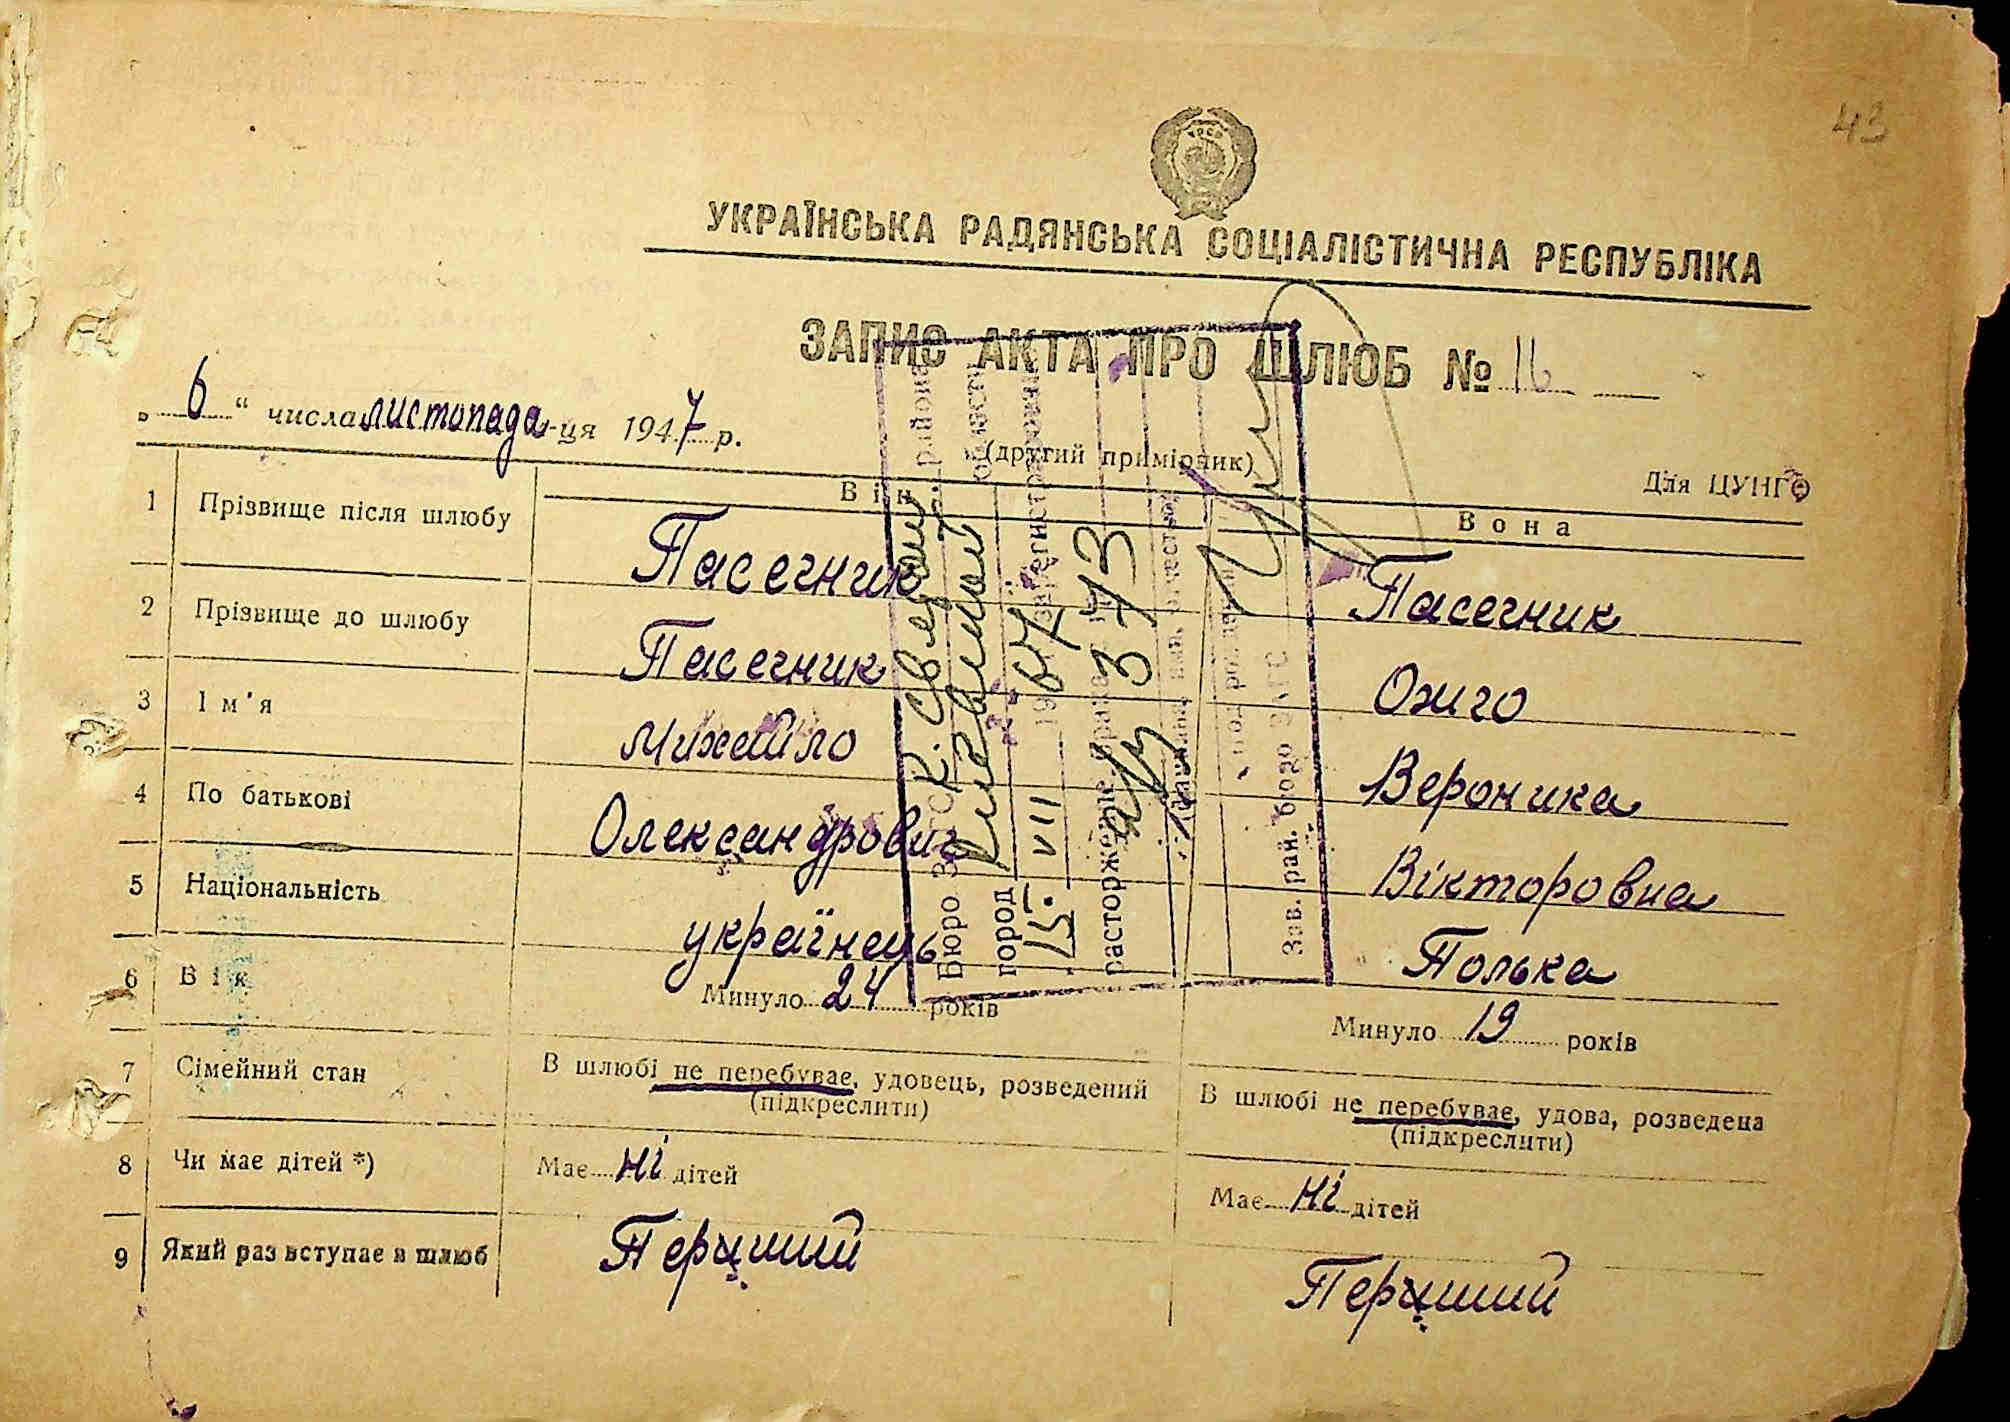 43
УКРАЇНСЬКА РАДЯНСЬКА СОЦІАЛІСТИЧНА РЕСПУБЛІКА
ЗАПИС АКТА ПРО ШЛЮБ № 16
„ 6 “ числа листопада -ця 1947 р.
(другий примірник)
Для ЦУНГО
Він Вона
1 Прізвище після шлюбу Пасечник Пасечник
2 Прізвище до шлюбу Пасечник Ожго
3 Ім'я Михайло Вероника
4 По батькові Олександрович Вікторовна
5 Національність українець Полька
6 Вік Минуло 24 років Минуло 19 років
7 Сімейний стан В шлюбі не перебуває, удовець, розведений (підкреслити) В шлюбі не перебуває, удова, розведена (підкреслити)
8 Чи має дітей *) Має ні дітей Має ні дітей
9 Який раз вступає в шлюб Перший Перший
Бюро района
город области
15. VII 1964 зарегистрировано
расторжение брака № 373
Зав. рай. бюро ЗАГС